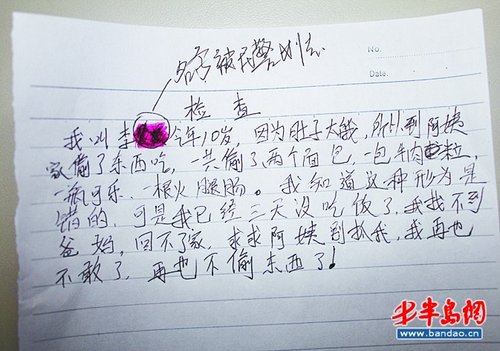 名字被民警划去
No.
Date.
检查
我叫李 今年10岁，因为肚子太饿，所以到阿姨
家偷了东西吃，一共偷了两个面包，一包牛肉粒，
一瓶可乐，一根火腿肠。我知道这种形为是
错的，可是我已经三天没吃饭了，我找不到
爸妈，回不了家，求求阿姨别抓我，我再也
不敢了，再也不偷东西了！
半岛网
www.bandao.cn